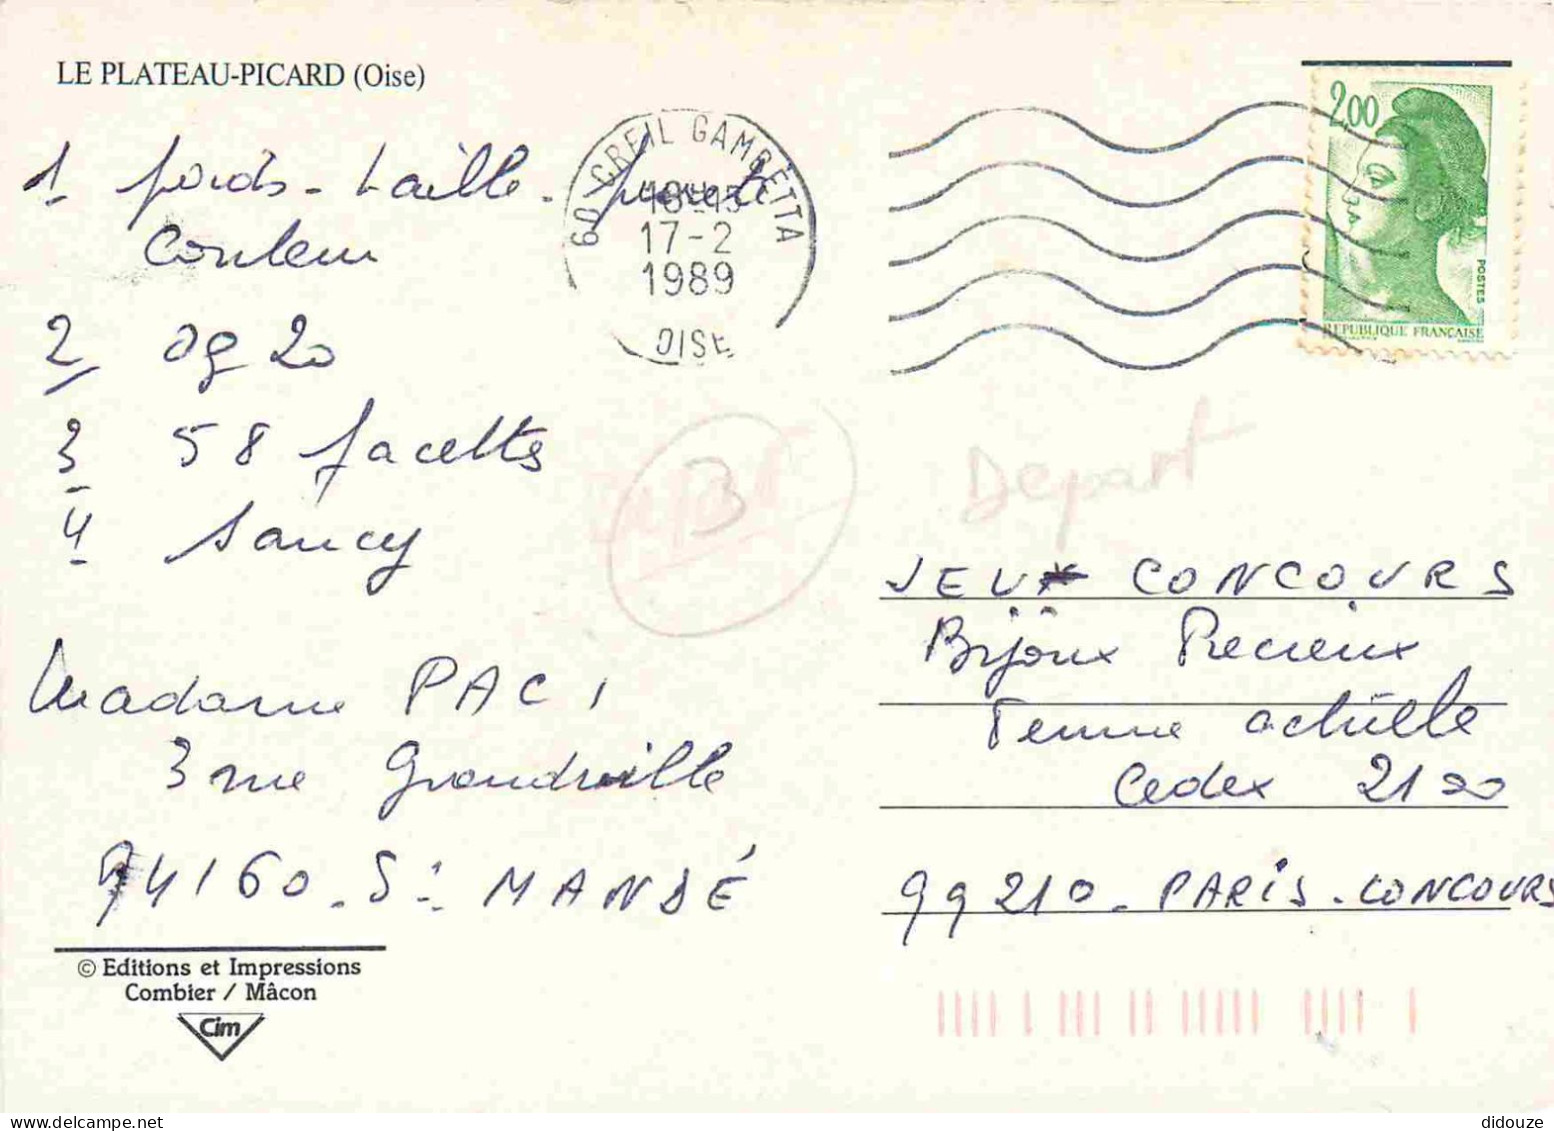 LE PLATEAU-PICARD (Oise)
1 poids - taille - pureté
Couleur
2/ 0g 20
3 58 facettes
4 Sancy
Madame PACI
3 rue Grandville
94160 - St MANDÉ
© Editions et Impressions
Combier / Mâcon
Cim
60 CREIL GAMBETTA
18H15
17-2
1989
OISE
2,00
POSTES
REPUBLIQUE FRANÇAISE
3
Depart
JEUX CONCOURS
Bijoux Precieux
Femme actuelle
Cedex 2120
99210 - PARIS - CONCOURS
didouze